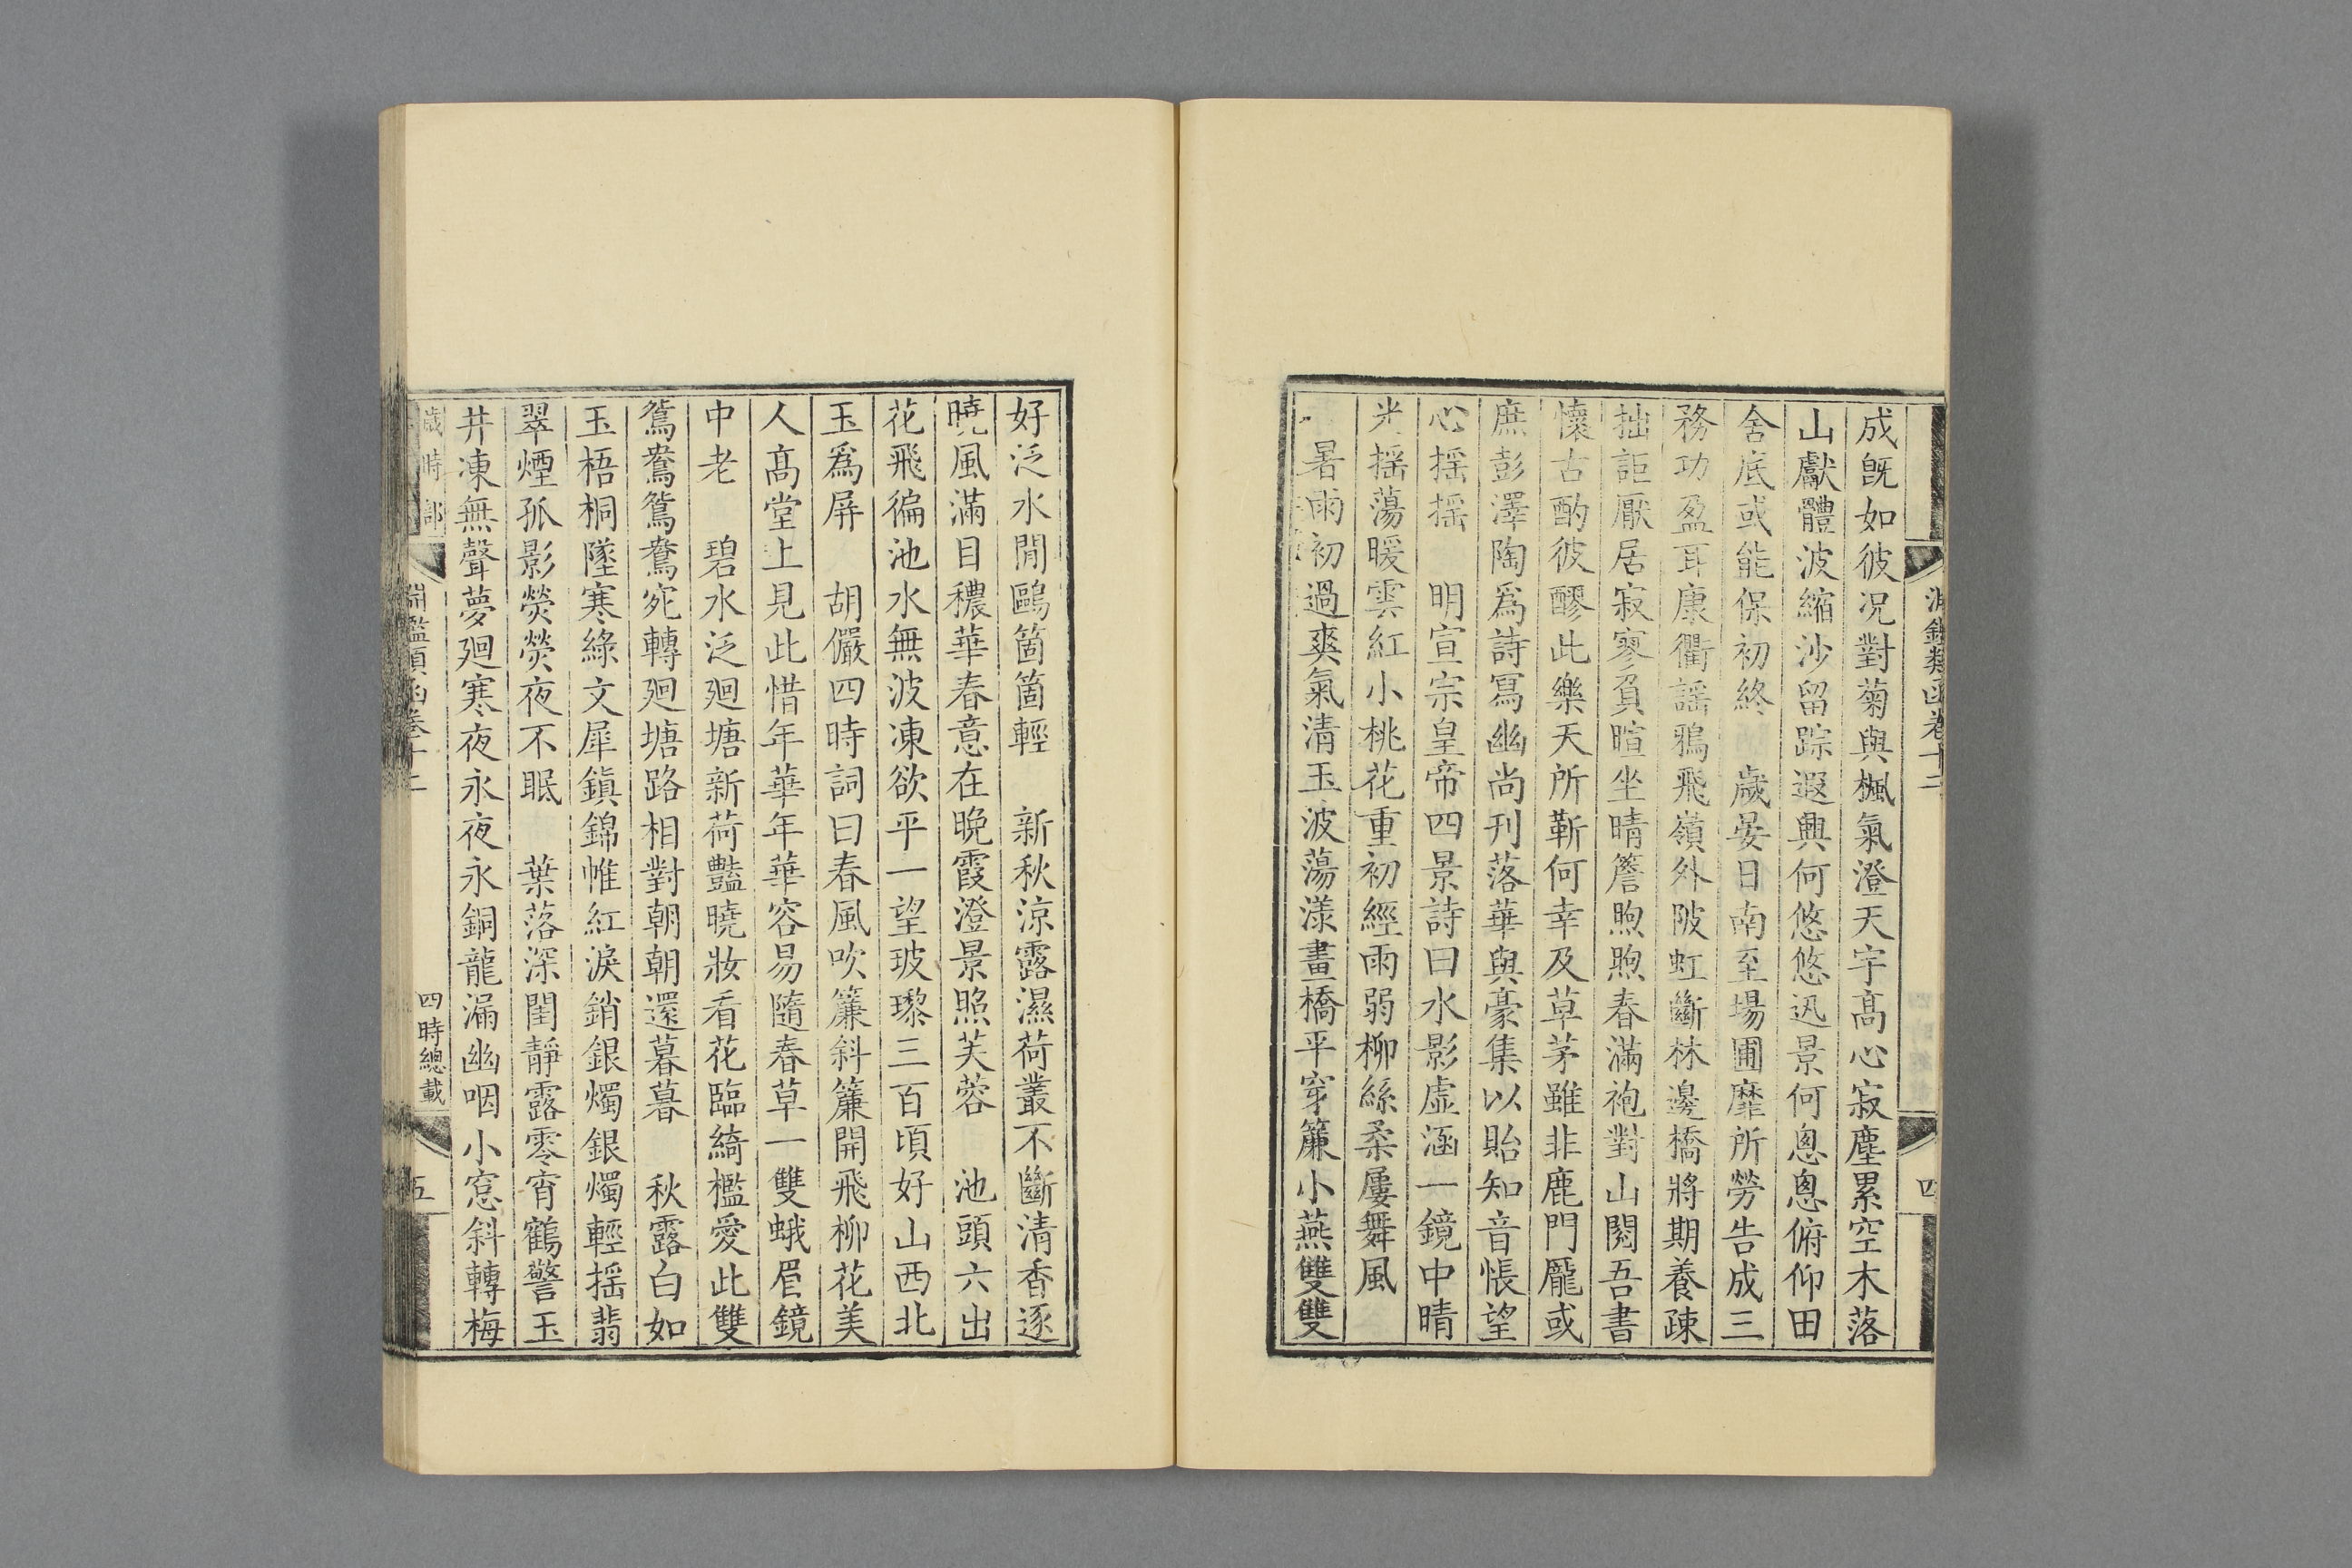 淵鑑類函卷十二
四
成旣如彼况對菊與楓氣澄天宇髙心寂塵累空木落
山獻體波縮沙留踪遐興何悠悠迅景何悤悤俯仰田
舍底或能保初終　歲晏日南至塲圃靡所勞告成三
務功盈耳康衢謡鴉飛嶺外陂虹斷林邊橋將期養疎
拙詎厭居寂寥負暄坐晴簷煦煦春滿袍對山閱吾書
懷古酌彼醪此樂天所靳何幸及草茅雖非鹿門龐或
庶彭澤陶爲詩冩幽尚刋落華與豪集以貽知音悵望
心揺揺　明宣宗皇帝四景詩曰水影虛涵一鏡中晴
光揺蕩暖雲紅小桃花重初經雨弱柳絲柔屢舞風
暑雨初過爽氣清玉波蕩漾畫橋平穿簾小燕雙雙
好泛水閒鷗箇箇輕　新秋涼露濕荷叢不斷清香逐
曉風滿目穠華春意在晩霞澄景照芙蓉　池頭六出
花飛徧池水無波凍欲平一望玻瓈三百頃好山西北
玉爲屏　胡儼四時詞曰春風吹簾斜簾開飛柳花美
人髙堂上見此惜年華年華容易隨春草一雙蛾眉鏡
中老　碧水泛廻塘新荷豔曉妝看花臨綺檻愛此雙
鴛鴦鴛鴦宛轉廻塘路相對朝朝還暮暮　秋露白如
玉梧桐墜寒綠文犀鎭錦帷紅淚銷銀燭銀燭輕揺翡
翠煙孤影熒熒夜不眠　葉落深閨靜露零宵鶴警玉
井凍無聲夢廻寒夜永夜永銅龍漏幽咽小窓斜轉梅
歲時部
淵鑑類函卷十二
四時總載
五